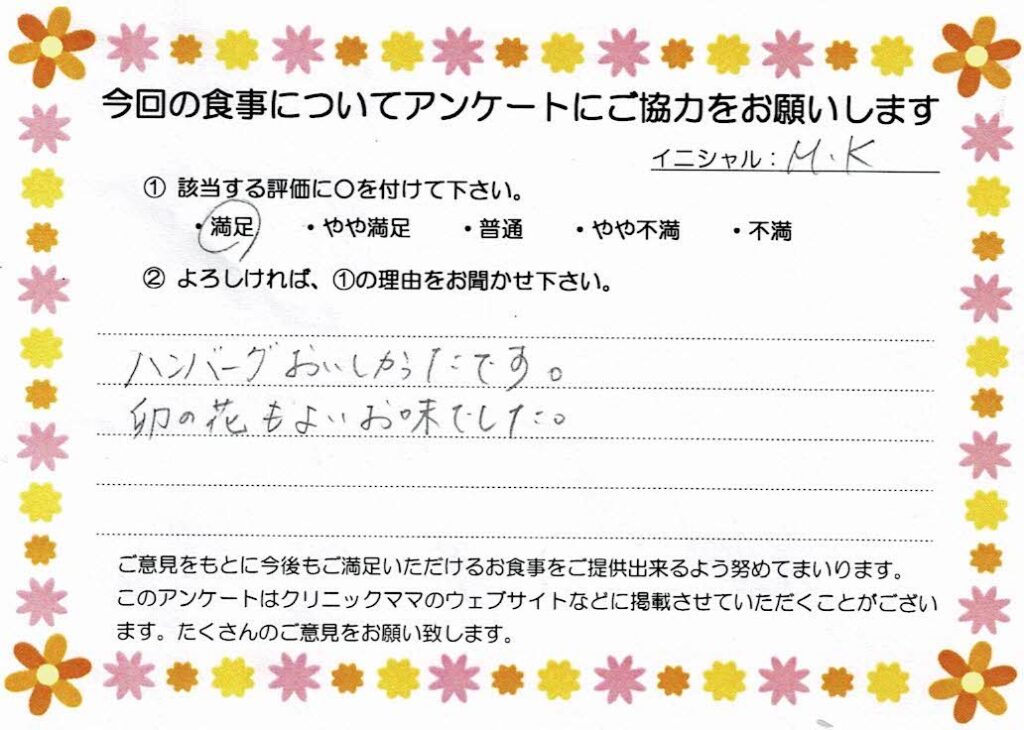 今回の食事についてアンケートにご協力をお願いします
イニシャル：M.K
① 該当する評価に〇を付けて下さい。
・満足 ・やや満足 ・普通 ・やや不満 ・不満
② よろしければ、①の理由をお聞かせ下さい。
ハンバーグおいしかったです。
卯の花もよいお味でした。
ご意見をもとに今後もご満足いただけるお食事をご提供出来るよう努めてまいります。
このアンケートはクリニックママのウェブサイトなどに掲載させていただくことがござい
ます。たくさんのご意見をお願い致します。